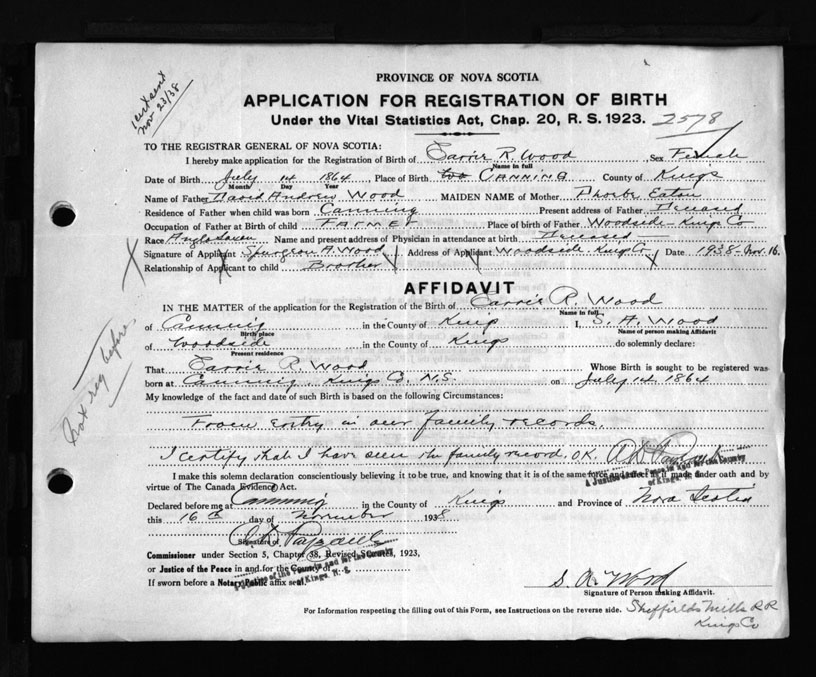 1 cert sent
Nov 23/38
PROVINCE OF NOVA SCOTIA
APPLICATION FOR REGISTRATION OF BIRTH
Under the Vital Statistics Act, Chap. 20, R. S. 1923. 2578
TO THE REGISTRAR GENERAL OF NOVA SCOTIA:
I hereby make application for the Registration of Birth of Carrie R. Wood Sex Female
Name in full
Date of Birth July 14 1864 Place of Birth CANNING County of Kings
Month Day Year
Name of Father David Andrew Wood MAIDEN NAME of Mother Phoebe Eaton
Residence of Father when child was born Canning Present address of Father Deceased
Occupation of Father at Birth of child FARMER Place of birth of Father Woodside Kings Co
Race Anglo Saxon Name and present address of Physician in attendance at birth Deceased
Signature of Applicant Spurgeon A. Wood Address of Applicant Woodside Kings Co Date 1938 Nov. 16
Relationship of Applicant to child Brother
AFFIDAVIT
IN THE MATTER of the application for the Registration of the Birth of Carrie R. Wood
Name in full
of Canning in the County of Kings I, S. A. Wood
Birth place Name of person making Affidavit
of Woodside in the County of Kings do solemnly declare:
Present residence
Not reg before
That Carrie R. Wood Whose Birth is sought to be registered was
born at Canning Kings Co. N.S. on July 14 1864
My knowledge of the fact and date of such Birth is based on the following Circumstances:
From entry in our family records.
I certify that I have seen the family record. O.K.
a Justice of the Peace in and for the County
of Kings
I make this solemn declaration conscientiously believing it to be true, and knowing that it is of the same force and effect as if made under oath and by
virtue of The Canada Evidence Act.
Declared before me at Canning in the County of Kings and Province of Nova Scotia
this 16th day of November 1938
Signature of
Commissioner under Section 5, Chapter 38, Revised Statutes, 1923,
or Justice of the Peace in and for the County of
a Justice of the Peace in and for the County
of Kings, N. S.
If sworn before a Notary Public affix seal.
S. A. Wood
Signature of Person making Affidavit.
For Information respecting the filling out of this Form, see Instructions on the reverse side.
Sheffields Mills RR
Kings Co